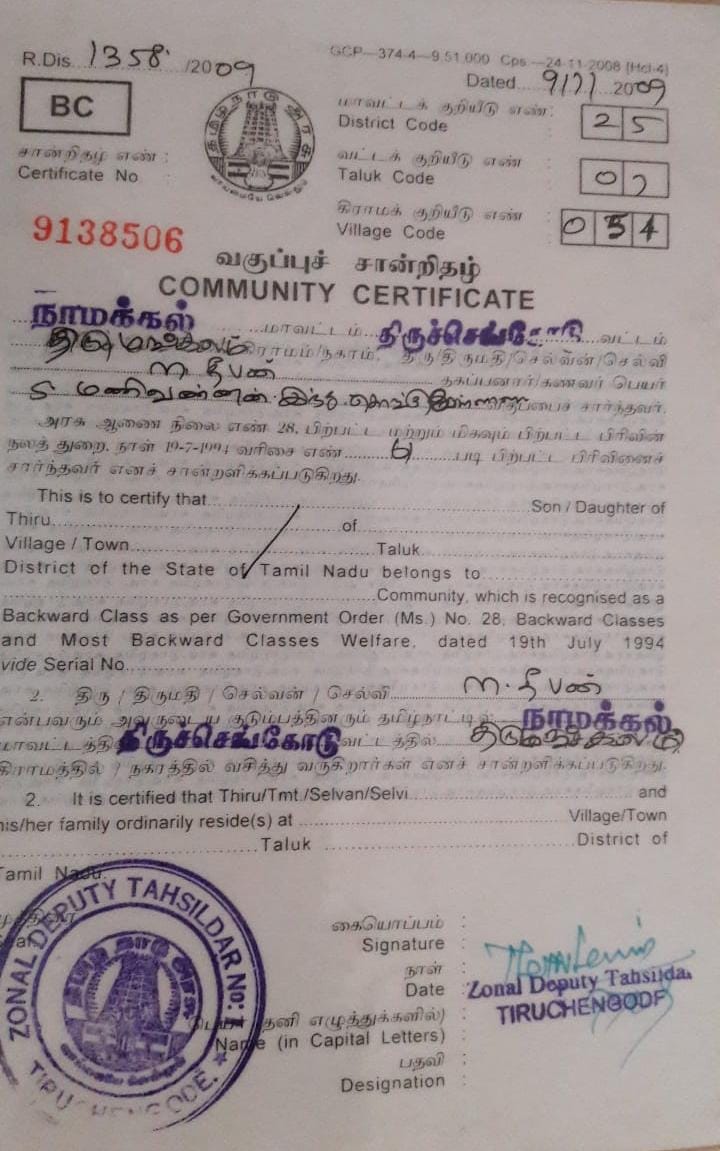 GCP—374-4—9,51,000 Cps.—24-11-2008 (Hcl-4)
R.Dis. 1358 /2009
Dated 2009
BC
தமிழ்நாடு அரசு
வாய்மையே வெல்லும்
மாவட்டக் குறியீடு எண் :
District Code 25
சான்றிதழ் எண் :
Certificate No
வட்டக் குறியீடு எண் :
Taluk Code 07
கிராமக் குறியீடு எண் :
Village Code 054
9138506
வகுப்புச் சான்றிதழ்
COMMUNITY CERTIFICATE
நாமக்கல் மாவட்டம் திருச்செங்கோடு வட்டம்
கிராமம்/நகரம், திரு/திருமதி/செல்வன்/செல்வி
ம. தீபன் தகப்பனார்/கணவர் பெயர்
மணிவண்ணன் இந்து சார்ந்தவர்.
அரசு ஆணை நிலை எண் 28, பிற்பட்ட மற்றும் மிகவும் பிற்பட்ட பிரிவின்
நலத் துறை, நாள் 19-7-1994 வரிசை எண் படி பிற்பட்ட பிரிவினைச்
சார்ந்தவர் எனச் சான்றளிக்கப்படுகிறது.
This is to certify that Son / Daughter of
Thiru of
Village / Town Taluk
District of the State of Tamil Nadu belongs to
Community, which is recognised as a
Backward Class as per Government Order (Ms.) No. 28, Backward Classes
and Most Backward Classes Welfare, dated 19th July 1994
vide Serial No.
2. திரு / திருமதி / செல்வன் / செல்வி ம. தீபன்
என்பவரும் அவருடைய குடும்பத்தினரும் தமிழ்நாட்டில் நாமக்கல்
மாவட்டத்தில் திருச்செங்கோடு வட்டத்தில்
கிராமத்தில் / நகரத்தில் வசித்து வருகிறார்கள் எனச் சான்றளிக்கப்படுகிறது.
2. It is certified that Thiru/Tmt./Selvan/Selvi and
his/her family ordinarily reside(s) at Village/Town
Taluk District of
Tamil Nadu.
ZONAL DEPUTY TAHSILDAR No: 1
TIRUCHENGODE.
கையொப்பம் :
Signature :
நாள் :
Date :
Zonal Deputy Tahsilda
TIRUCHENGODE
தனி எழுத்துக்களில்) :
Name (in Capital Letters) :
பதவி :
Designation :